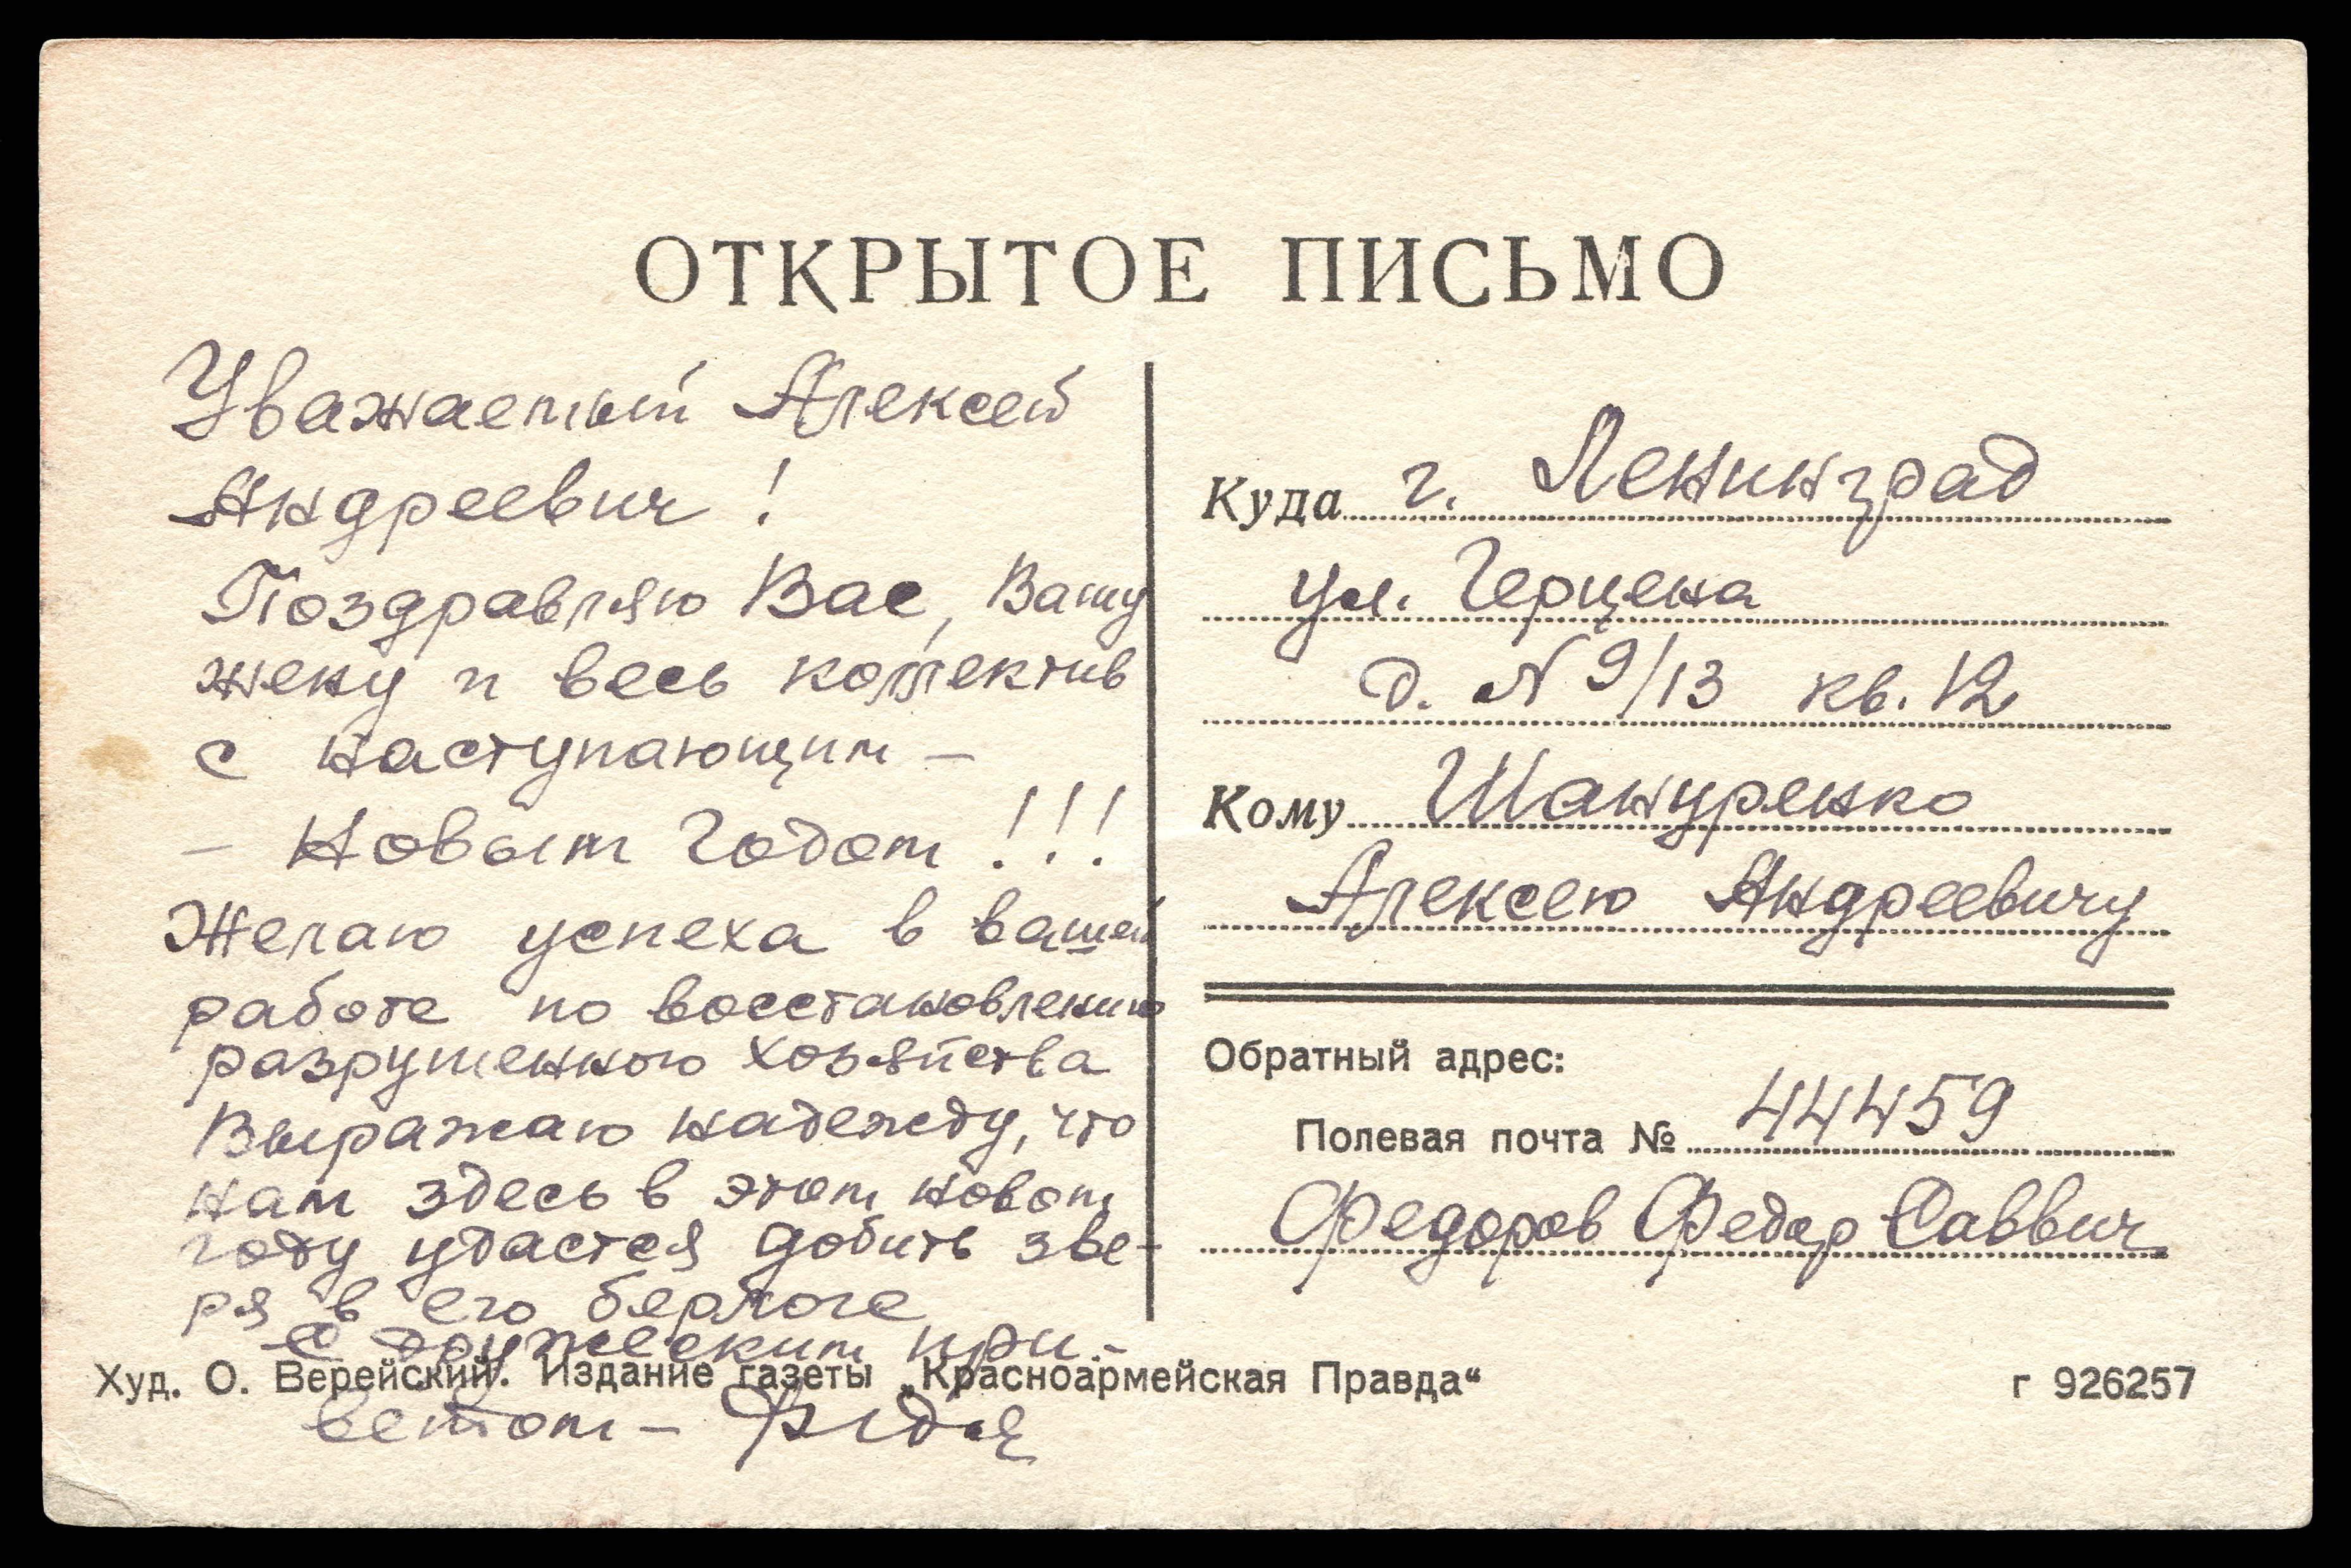 ОТКРЫТОЕ ПИСЬМО
Уважаемый Алексей
Андреевич !
Поздравляю Вас, Вашу
жену и весь коллектив
с наступающим –
– Новым Годом !!!
Желаю успеха в вашей
работе по восстановлению
разрушенного хозяйства
Выражаю надежду, что
нам здесь в этом новом
году удастся добить зве-
ря в его берлоге
С дружеским при-
ветом – Федя
Куда г. Ленинград
ул. Герцена
д. N 9/13 кв. 12
Кому Шануренко
Алексею Андреевичу
Обратный адрес:
Полевая почта № 44459
Федоров Федор Саввич
Худ. О. Верейский. Издание газеты „Красноармейская Правда“
г 926257